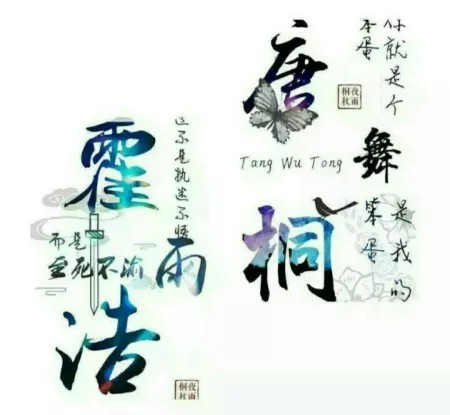 霍雨浩
这不是执迷不悟
而是
至死不渝
夜雨
桐秋
唐舞桐
Tang Wu Tong
你就是个
本蛋
是我的
笨蛋
夜雨
桐秋